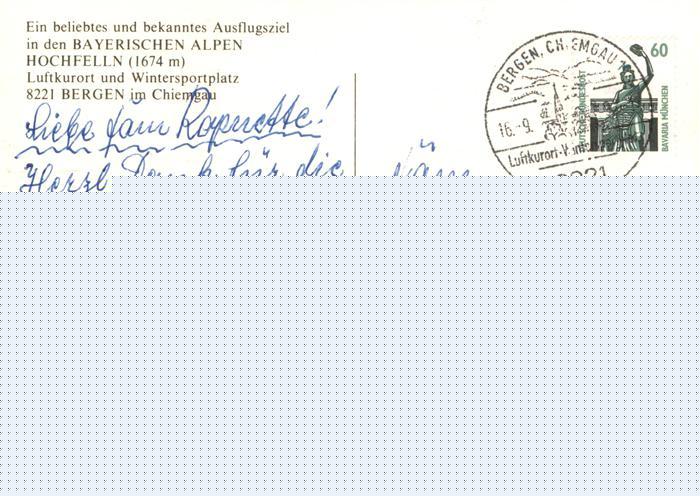 Ein beliebtes und bekanntes Ausflugsziel
in den BAYERISCHEN ALPEN
HOCHFELLN (1674 m)
Luftkurort und Wintersportplatz
8221 BERGEN im Chiemgau
Liebe
Herzl. Dank für die
BERGEN, CHIEMGAU
16.-9.
Luftkurort
8221
60
DEUTSCHE BUNDESPOST
BAVARIA MÜNCHEN